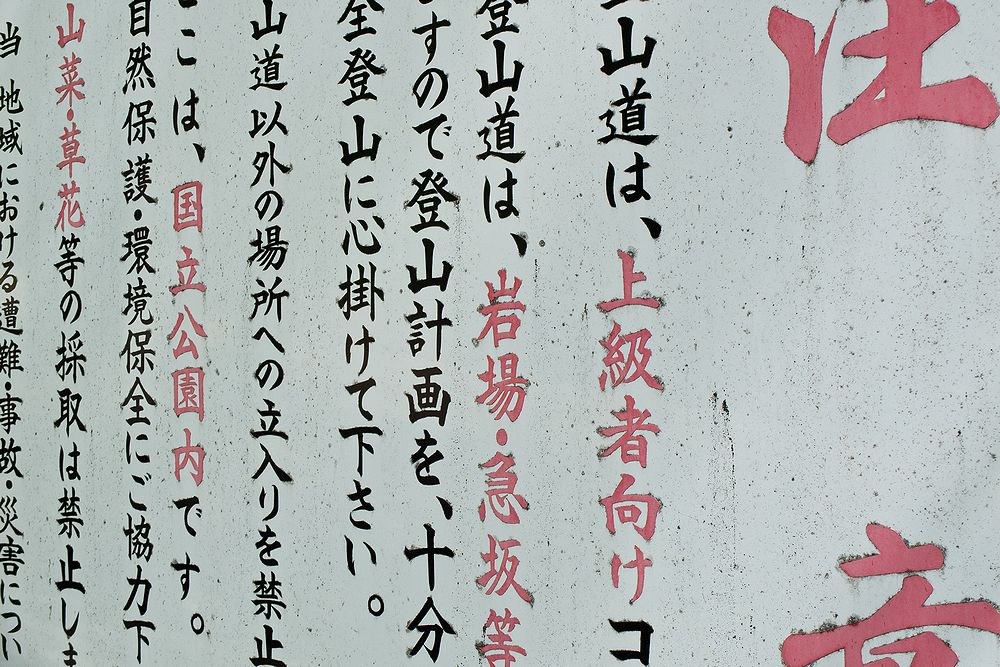 注意
山道は、上級者向けコ
登山道は、岩場・急坂等
すので登山計画を、十分
全登山に心掛けて下さい。
山道以外の場所への立入りを禁止
こは、国立公園内です。
自然保護・環境保全にご協力下
山菜・草花等の採取は禁止しま
当地域における遭難・事故・災害につい